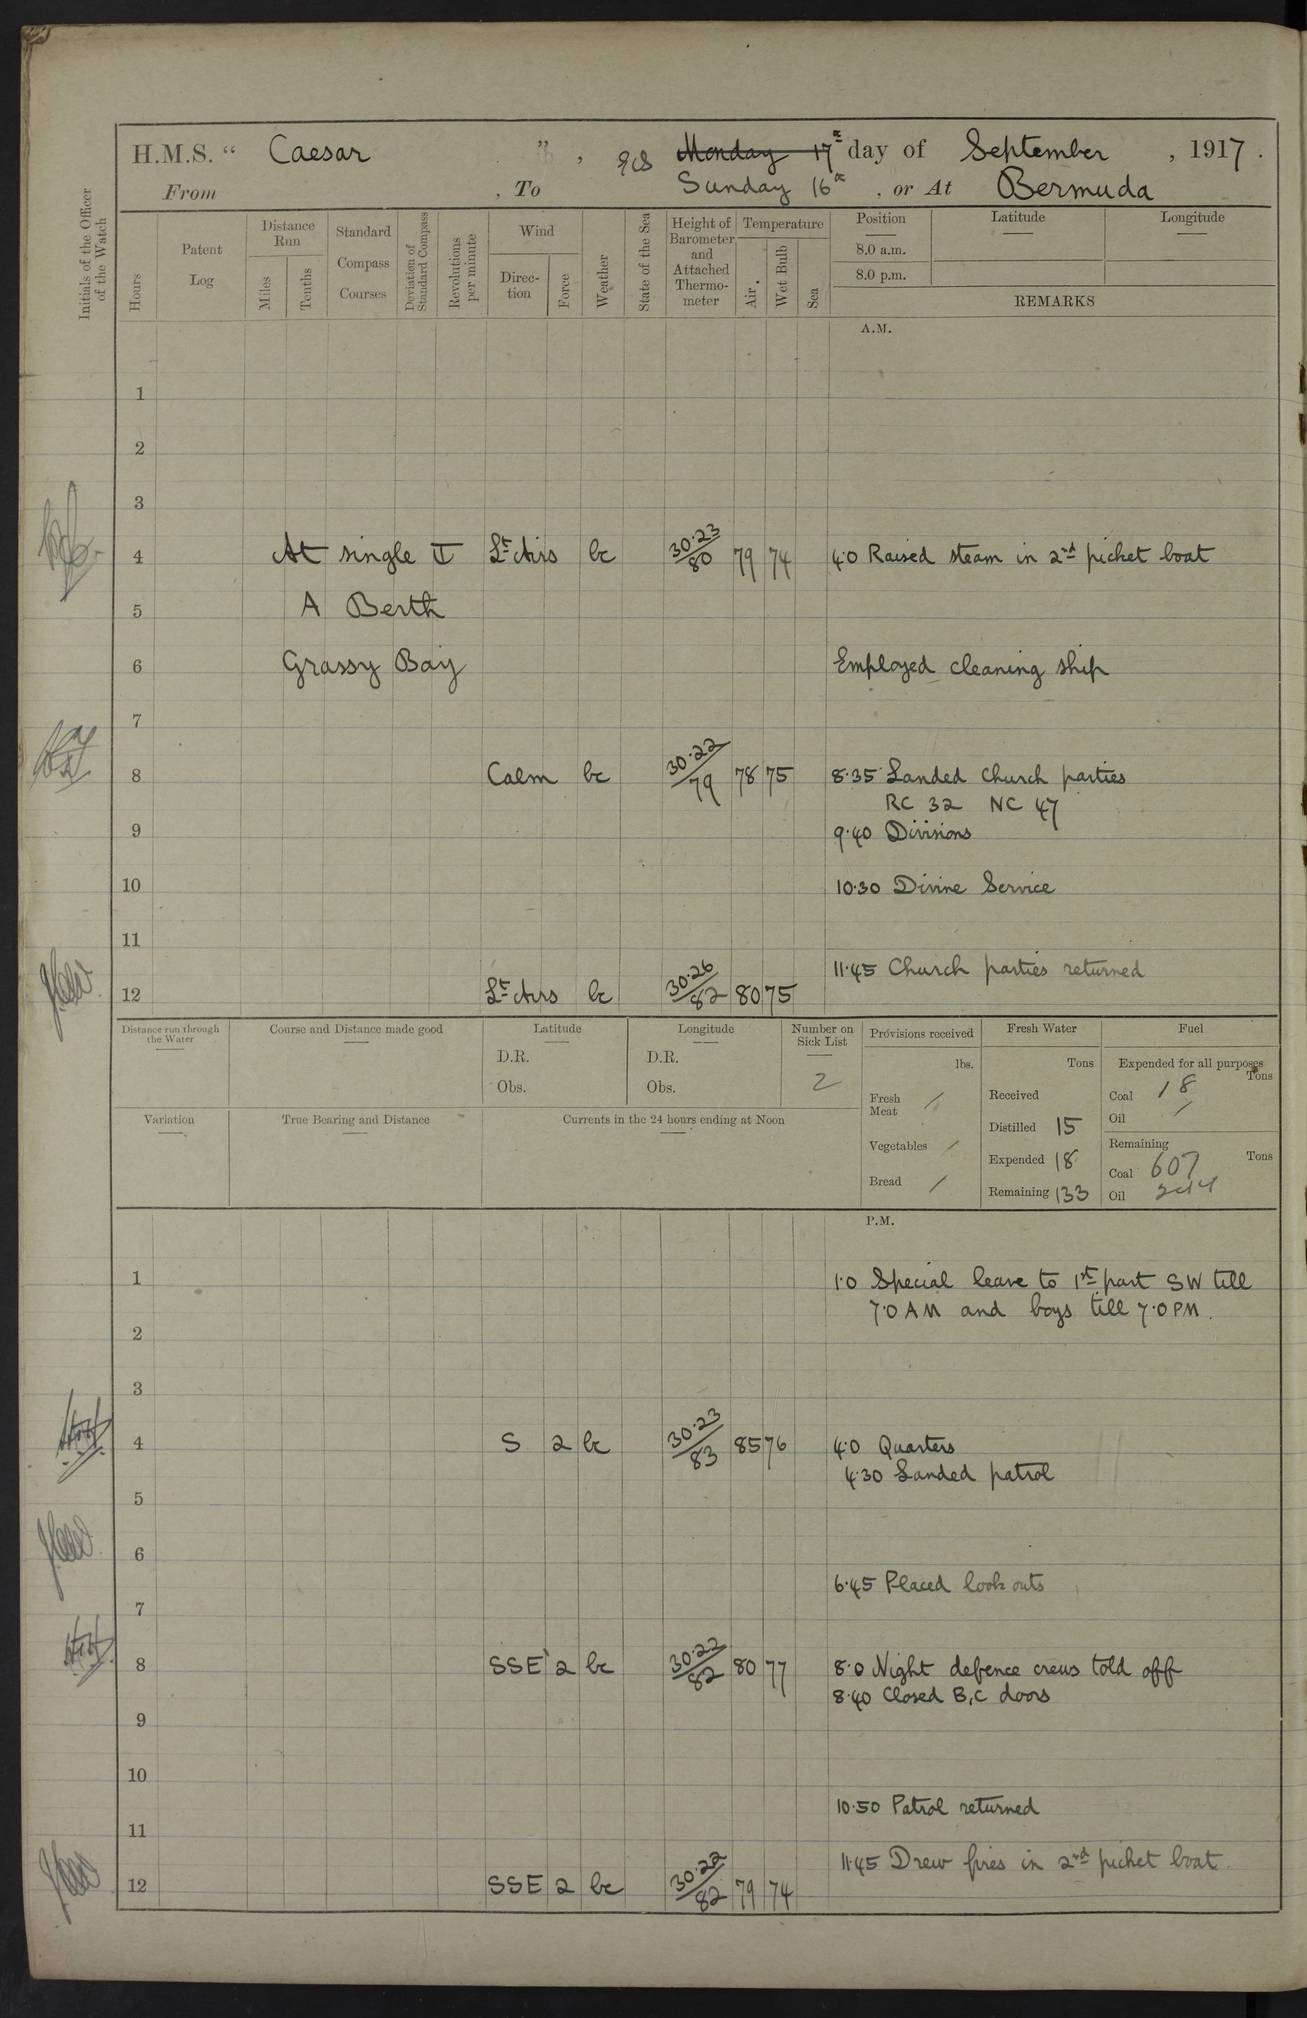 H.M.S. “ Caesar ” , Monday 17th day of September , 1917 .
From , To Sunday 16th , or At Bermuda
Initials of the Officer of the Watch
Hours
Patent Log
Distance Run
Miles
Tenths
Standard Compass Courses
Deviation of Standard Compass
Revolutions per minute
Wind
Direction
Force
Weather
State of the Sea
Height of Barometer and Attached Thermometer
Temperature
Air
Wet Bulb
Sea
Position
8.0 a.m.
8.0 p.m.
Latitude
Longitude
REMARKS
A.M.
1
2
3
4 At single Lt Airs bc 30·23/80 79 74 4·0 Raised steam in 2nd picket boat
5 A Berth
6 Grassy Bay Employed cleaning ship
7
8 Calm bc 30·22/79 78 75 8·35 Landed Church parties
RC 32 NC 47
9 9·40 Divisions
10 10·30 Divine Service
11
11·45 Church parties returned
12 Lt Airs bc 30·26/82 80 75
Distance run through the Water
Course and Distance made good
Latitude
D.R.
Obs.
Longitude
D.R.
Obs.
Number on Sick List
2
Provisions received
lbs.
Fresh Meat /
Vegetables /
Bread /
Fresh Water
Tons
Received
Distilled 15
Expended 18
Remaining 133
Fuel
Expended for all purposes
Tons
Coal 18
Oil /
Remaining
Tons
Coal 607
Oil
Variation
True Bearing and Distance
Currents in the 24 hours ending at Noon
P.M.
1 1·0 Special leave to 1st part SW till
7·0 AM and boys till 7·0 PM.
2
3
4 S 2 bc 30·23/83 85 76 4·0 Quarters
4·30 Landed patrol
5
6
6·45 Placed look outs
7
8 SSE 2 bc 30·22/82 80 77 8·0 Night defence crews told off
8·40 Closed B,C doors
9
10
10·50 Patrol returned
11
11·45 Drew fires in 2nd picket boat.
12 SSE 2 bc 30·22/82 79 74